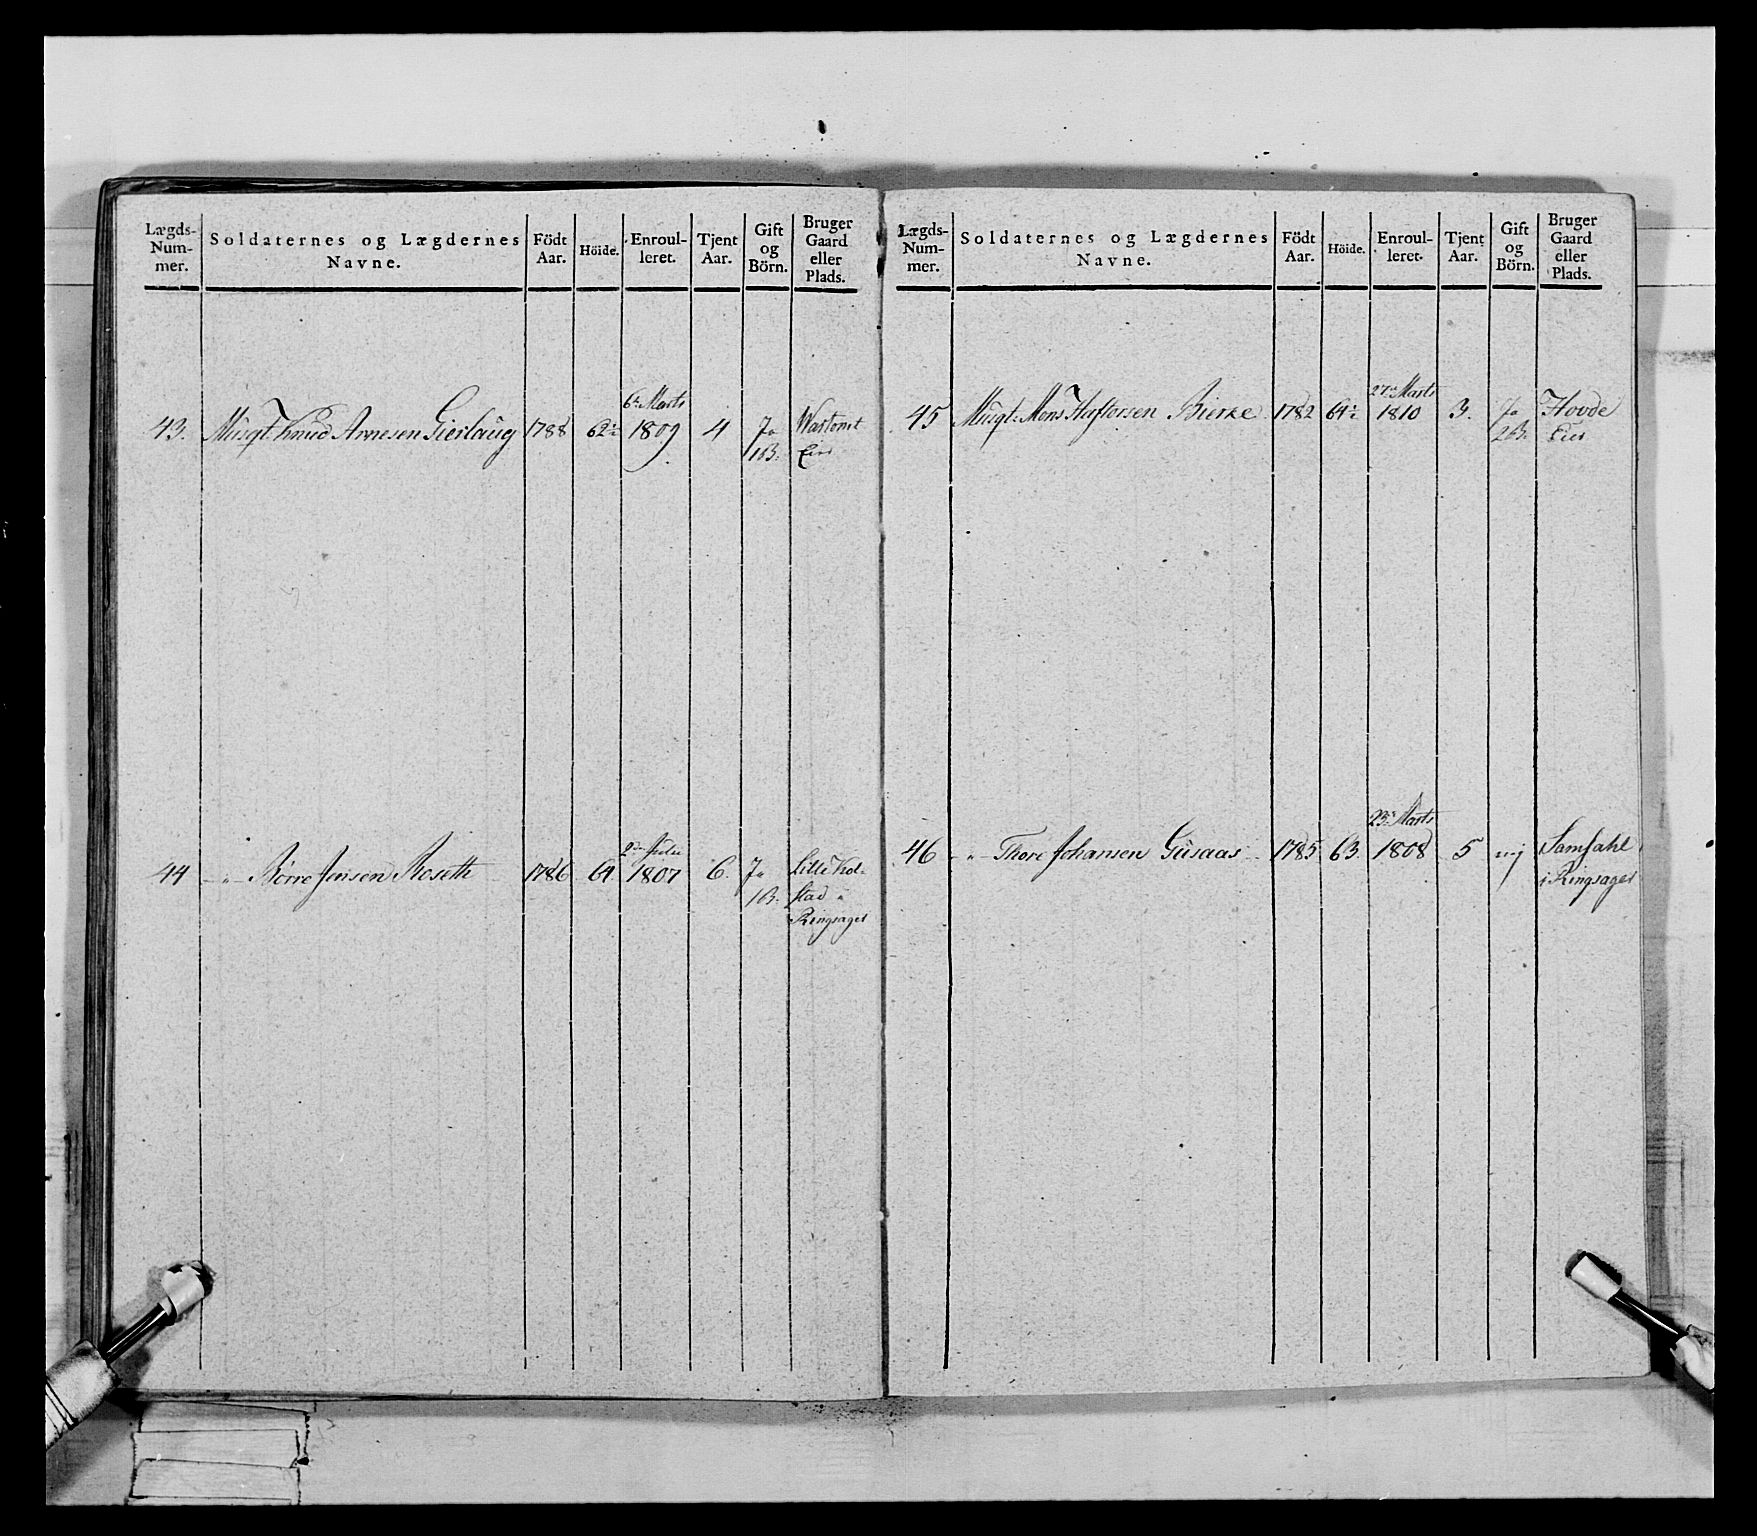 Lægds-Num-mer. Soldaternes og Lægdernes Navne. Födt Aar. Höide. Enroul-leret. Tjent Aar. Gift og Börn. Bruger Gaard eller Plads.
6te Marts
43. Musqt. Knud Arnesen Gierlaug 1788 62½ 1809 4 Ja
1 B. Eier
2den Julii
44 " Börre Jensen Roseth 1786 64 1807 6. Ja Lille Kol-
1 B. stad i
Ringsager
Lægds-Num-mer. Soldaternes og Lægdernes Navne. Födt Aar. Höide. Enroul-leret. Tjent Aar. Gift og Börn. Bruger Gaard eller Plads.
27de Marts
45 Musqt. Mons Haftorsen Bierke 1782 64½ 1810 3. Ja Hovde
2 B. Eier
23de Marts
46 " Thore Johansen Gusaas 1785 63. 1808 5 nej
i Ringsager